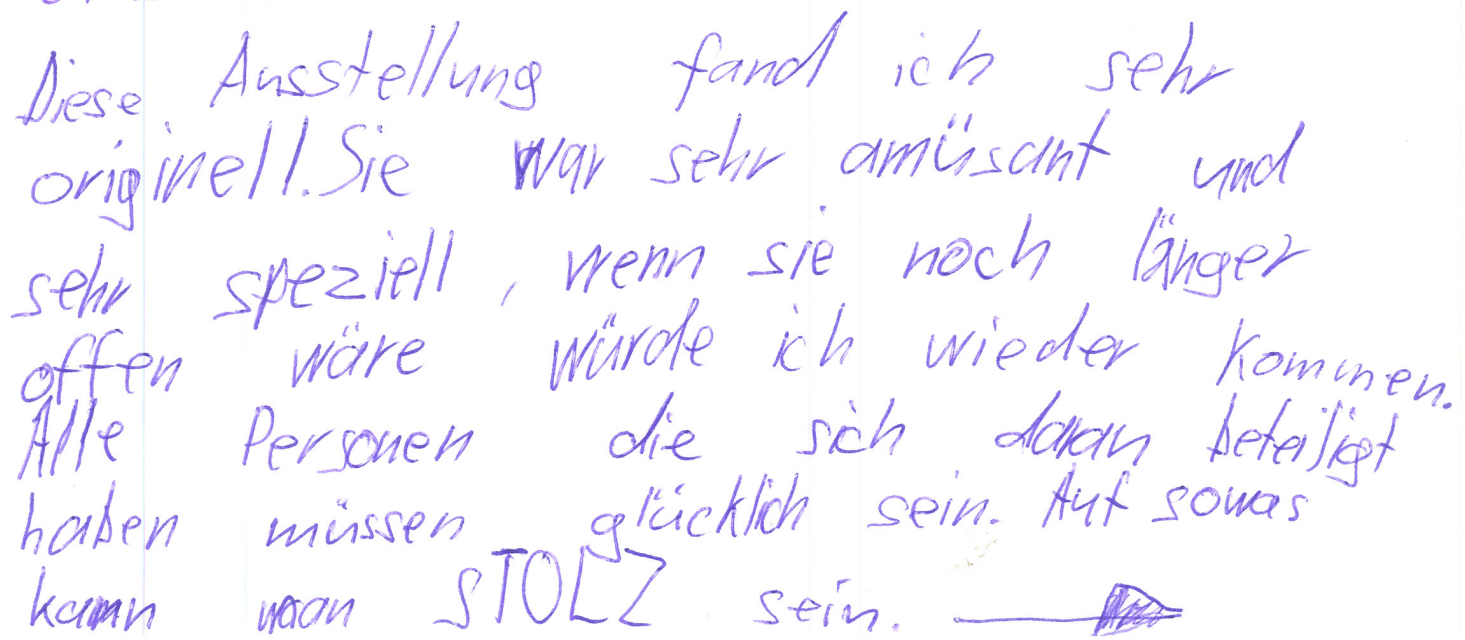 Diese Ausstellung fand ich sehr
originell. Sie war sehr amüsant und
sehr speziell, wenn sie noch länger
offen wäre würde ich wieder kommen.
Alle Personen die sich daran beteiligt
haben müssen glücklich sein. Auf sowas
kann man STOLZ sein.